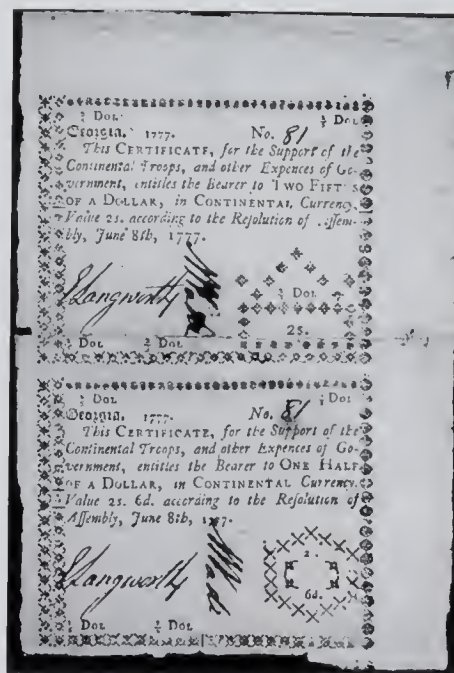 Dol. Dol.
Georgia. 1777. No. 81
This CERTIFICATE, for the Support of the
Continental Troops, and other Expences of Go-
vernment, entitles the Bearer to TWO FIFTHS
OF A DOLLAR, in CONTINENTAL Currency,
Value 2s. according to the Resolution of Assem-
bly, June 8th, 1777.
Langworthy Wade
Dol.
2s.
Dol. Dol.
Dol. Dol.
Georgia. 1777. No. 81
This CERTIFICATE, for the Support of the
Continental Troops, and other Expences of Go-
vernment, entitles the Bearer to ONE HALF
OF A DOLLAR, in CONTINENTAL Currency,
Value 2s. 6d. according to the Resolution of
Assembly, June 8th, 1777.
Langworthy Wade
2
6d.
Dol. Dol.